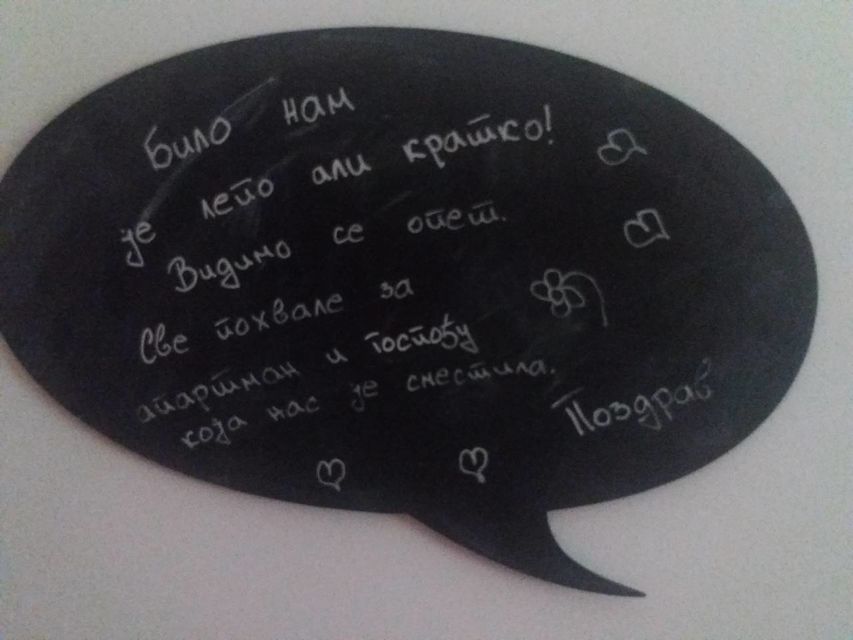 Било нам
је лепо али кратко!
Видимо се опет.
Све похвале за
апартман и госпођу
која нас је сместила.
Поздрав